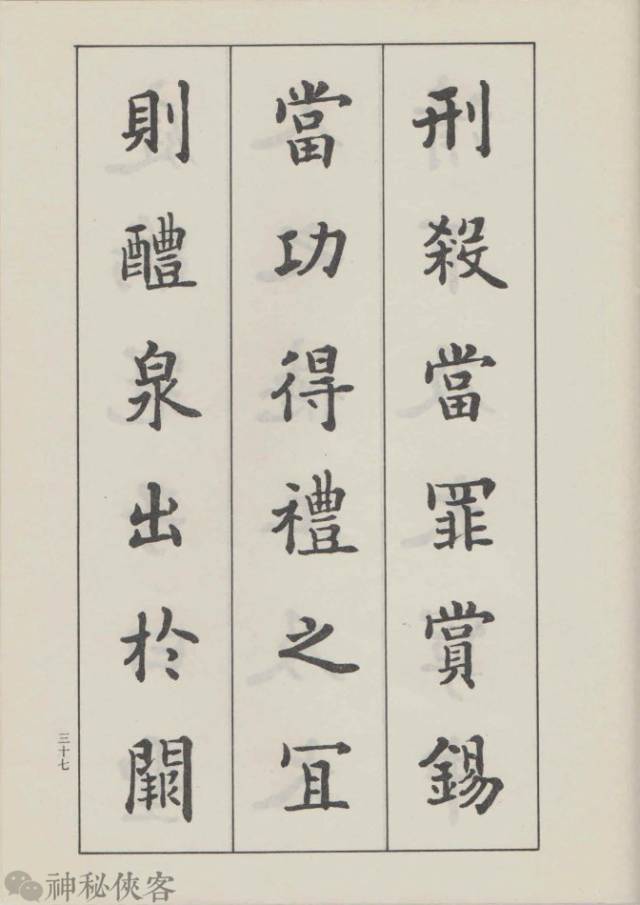 刑殺當罪賞錫
當功得禮之冝
則醴泉出於闕
三十七
神秘俠客